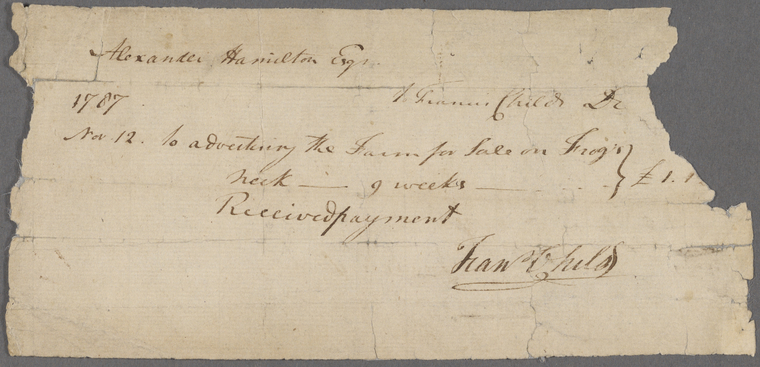 Alexander Hamilton Esqr.
1787. To Francis Childs Dr
Nov. 12. to advertising the Farm for Sale on Frog's
Neck — 9 weeks — } £ 1. 1
Received payment
Fran Childs